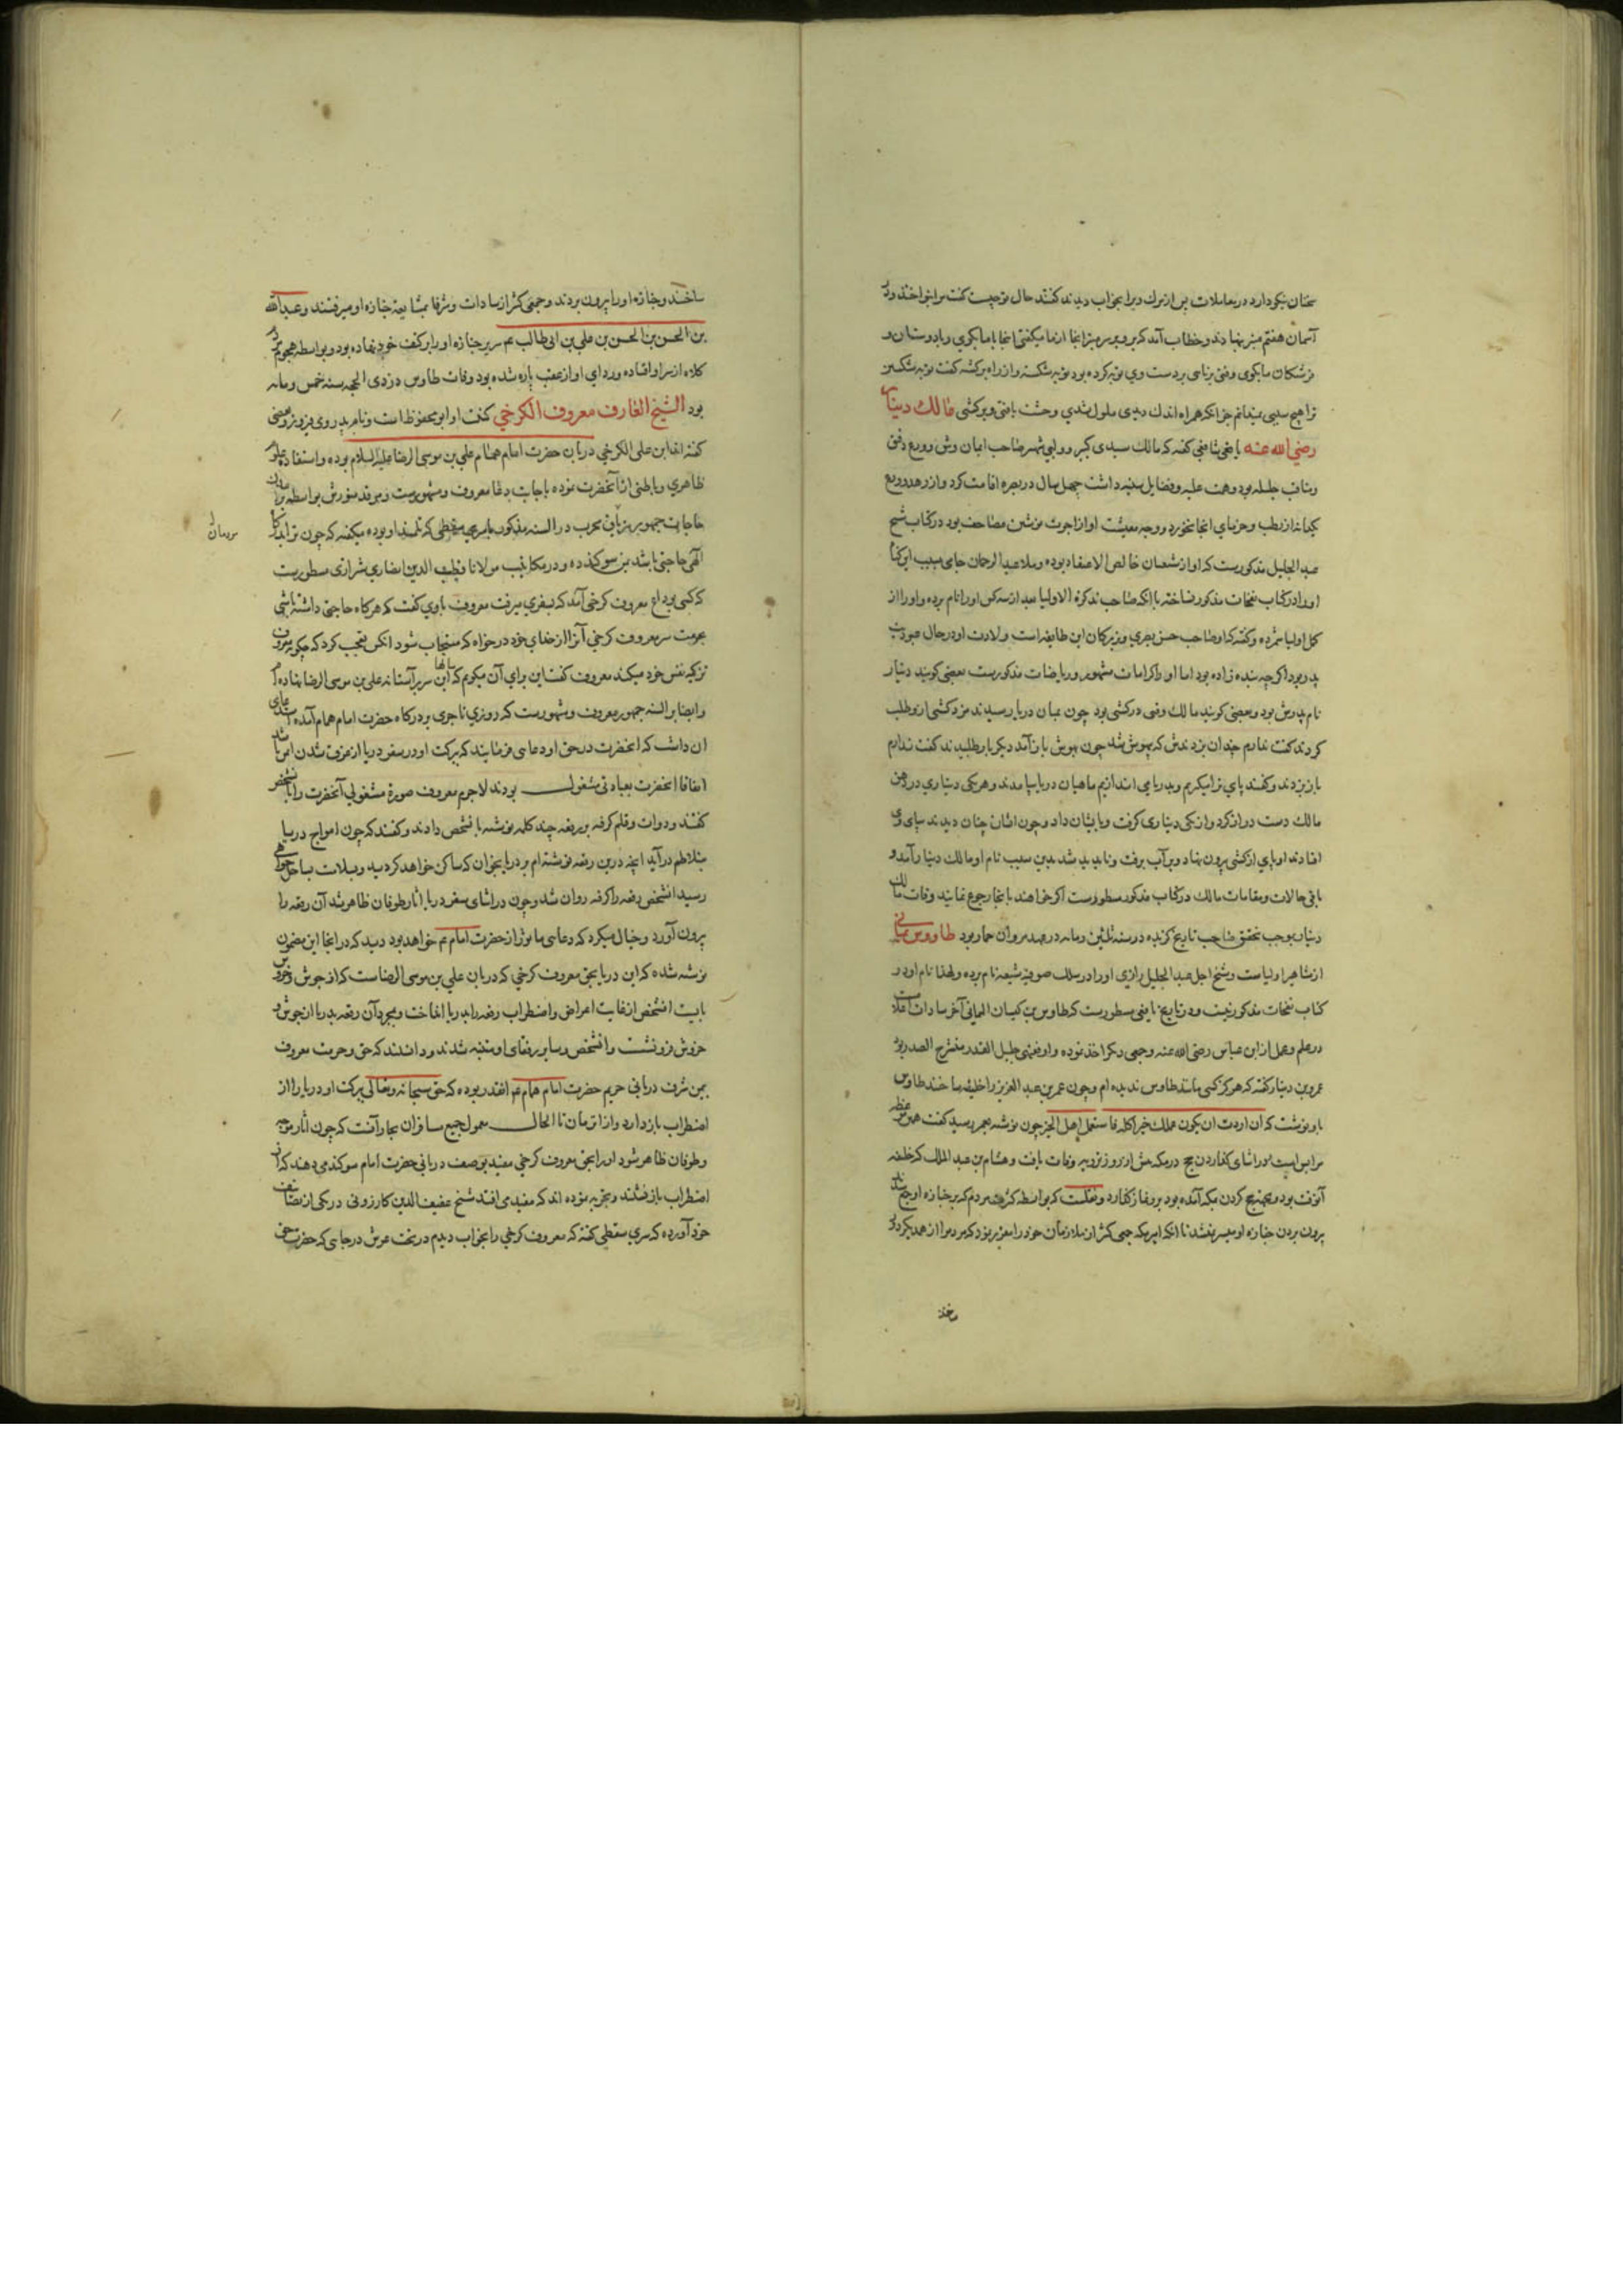 سخنان نیکو دارد در معاملات پس از مرك ویرا بخواب دیدند کفتند حال تو چیست کفت مرا بنواختند و در
آسمان هفتم منبر نهادند و خطاب آمد که برو بر سر منبر انجا از ما میکفتی اینجا با ما بکوی و با دوستان و
فرشتکان ما بکوی وقتی برنایی بر دست وی توبه کرده بود توبه بشکست و از راه برکشته کفت توبه شکستن
ترا هیچ سببی نمیدانم جز انکه همراه اندك دیدی ملول شدی وحشت یافتی و برکشتی مالك دینار
رضی الله عنه یافعی شافعی کفته که مالك سیدی کبیر و ولی شهیر صاحب ایمان و ورع دقیق
ومناقب جلیله بود و همت علیه و فضایل سنیه داشت چهل سال در بصره اقامت کرد و از زهد و ورع
کیانه از رطب و خرمای انجا نخورد و وجه معیشت او از اجرت نوشتن مصاحف بود در کتاب شیخ
عبد الجلیل مذکورست که او از شیعیان خالص الاعتقاد بوده و ملا عبد الرحمان جامی بسبب این
او را در کتاب نفحات مذکور نساخته با انکه صاحب تذکرة الاولیا بعد از سه کس او را نام برده و او را از
کمل اولیا شمرده و کفته که او صاحب حسن بصری و بزرکان این طایفه است ولادت او در حال عبودیت
پدر بود اکرچه بنده زاده بود اما او را کرامات مشهور و ریاضات مذکورست بعضی کویند دینار
نام پدرش بود و بعضی کویند مالك وقتی در کشتی بود چون بمیان دریا رسیدند مزد کشتی از و طلب
کردند کفت ندارم چندان بزدندش که بیهوش شد چون بهوش باز آمد دیکر بار طلبیدند کفت ندارم
باز بزدند و کفتند پای ترا میکیریم و بدریا می اندازیم ماهیان دریا بیامدند و هر یکی دیناری در دهن
مالك دست دراز کرد و از یکی دیناری کرفت و بایشان داد و چون ایشان چنان دیدند بپای وی
افتادند او پای از کشتی بیرون نهاد و بر آب برفت و ناپدید شد بدین سبب نام او مالك دینار آمد و
باقی حالات و مقامات مالك در کتاب مذکور مسطورست اکر خواهند بانجا رجوع نمایند وفات مالك
دینار بموجب تحقیق صاحب تاریخ کزیده در سنه ثلثین ومایه در عهد مروان حمار بود طاووس یمانی
از مشاهیر اولیاست و شیخ اجل عبد الجلیل رازی او را در سلك صوفیه شیعه نام برده و لهذا نام او در
کتاب نفحات مذکور نیست و در تاریخ یافعی مسطورست که طاوس بن کیسان الیمانی
در علم و عمل از ابن عباس رضی الله عنه و جمعی دیکر اخذ نموده و او فقیهی جلیل القدر منشرح الصدر بود
عمرو بن دینار کفته که هرکز کسی مانند طاوس ندیده ام و چون عمر بن عبد العزیز را خلیفه ساختند طاوس
باو نوشت که ان اردت ان یکون عملك خیرا کله فاستعمل اهل الخیر چون نوشته بعمر رسید کفت همین موعظه
مرا بس است و در اثنای کذاردن حج در مکه پیش از روز ترویه وفات یافت و هشام بن عبد الملك که خلیفه
آنوقت بود و بجهة حج کردن بمکه آمده بود برو نماز کذارد و نقلست که بواسطه کثرت مردم که بر جنازه او جمع شدند
بیرون بردن جنازه او میسر نمیشد تا انکه امیر مکه جمعی کثیر از ملازمان خود را تعزیر نمود که مردم را از همدیکر دور
ساختند
ساختند و جنازه او را بیرون بردند و جمعی کثیر از سادات و شرفا بمشایعه جنازه او میرفتند و عبد الله
بن الحسن بن الحسن بن علی بن ابی طالب عم سریر جنازه او را بر کتف خود نهاده بود و بواسطه هجوم
کلاه از سر او افتاده و ردای او از عقب پاره شده بود وفات طاوس در ذی الحجه سنه خمس ومایه
بود الشیخ العارف معروف الکرخی کنیت او ابو محفوظ است و نام پدر وی فیروز و بعضی
کفته اند ابن علی الکرخی دربان حضرت امام همام علی بن موسی الرضا علیه السلام بوده و استفاده علوم
ظاهری و باطنی از آنحضرت نموده باجابت دعا معروف و مشهورست و مرقد منورش بواسطه
حاجات جمهور تریاق مجرب در السنه مذکور با سری سقطی که تلمیذ او بوده میکفته که چون ترا بدرکاه
مردمان
آلهی حاجتی باشد بمن سوکند ده و در مکاتیب مولانا قطب الدین انصاری شیرازی مسطورست
که کسی بوداع معروف کرخی آمد که بسفری میرفت معروف باوی کفت که هرکاه حاجتی داشته باشی
بحرمت سر معروف کرخی آنرا از خدای خود درخواه که مستجاب شود انکس تعجب کرد که چکونه
تزکیه نفس خود میکند معروف کفت این برای آن میکویم که این سر سالها بر آستانه علی بن موسی الرضا نهاده ام
و ایضا بر السنه جمهور معروف و مشهورست که روزی تاجری بدرکاه حضرت امام همام آمده استدعای
آن داشت که انحضرت در حق او دعایی فرمایند که ببرکت او در سفر دریا از غرق شدن ایمن باشد
اتفاقا انحضرت بعبادتی مشغول بودند لاجرم معروف صورة مشغولی آنحضرت را بانشخص
کفتند و دوات و قلم کرفته بر رقعه چند کلمه نوشته بانشخص دادند و کفتند که چون امواج دریا
بتلاطم درآید انچه درین رقعه نوشته ام بر دریا بخوان که ساکن خواهد کردید و بسلامت بساحل خواهی
رسید انشخص رقعه را کرفته روان شد و چون در اثنای سفر دریا اثار طوفان ظاهر شد آن رقعه را
بیرون آورد و خیال میکرد که دعایی ماثور از حضرت امام عم خواهد بود دید که در انجا این مضمون
نوشته شده که این دریا بحق معروف کرخی که دربان علی بن موسی الرضاست که از جوش و خروش
بایست انشخص از غایت اعراض و اضطراب رقعه را بدریا انداخت و بمجرد آن رقعه بدریا از جوش و
خروش فرو نشست و انشخص و سایر رفقای او متنبه شدند و دانستند که حق و حرمت معروف
بیمن شرف دربانی حریم حضرت امام همام عم انقدر بوده که حق سبحانه و تعالی ببرکت او دریا را از
اضطراب باز دارد و از ان زمان تا الحال معمول جمیع مسافران بحار آنست که چون اثار موج
و طوفان ظاهر شود او را بحق معروف کرخی مقید بوصف دربانی حضرت امام سوکند می دهند که از
اضطراب باز نشیند و تجربه نموده اند که مفید می افتد شیخ عفیف الدین کازرونی در یکی از تصانیف
خود آورده که سری سقطی کفته که معروف کرخی را بخواب دیدم در تحت عرش در جایی که حضرت حق